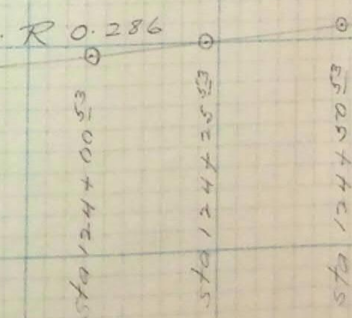 . R 0.286
Sta 124+00 53
Sta 124+25 53
Sta 124+50 53